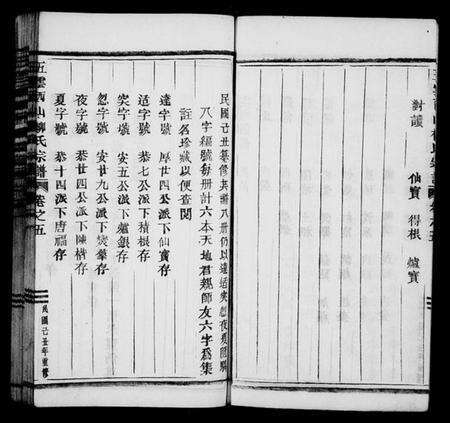 對讀 仙寶 得根 爐寶
民國己丑纂修其譜八冊仍以達适突忽夜夏
八字編號每冊計六本天地君親師友六字為集
註名珍藏以便查閱
達字號 厚廿四公派下仙寶存
适字號 恭七公派下積根存
突字號 安五公派下爐銀存
忽字號 安廿九公派下存
夜字號 恭廿四公派下陳楷存
夏字號 恭十四派下唐福存
山柳氏宗譜 卷之五
民國己丑年重修